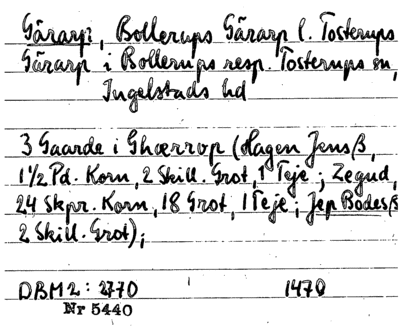 Gärarp, Bollerups Gärarp l. Tosterups
Gärarp i Bollerups resp. Tosterups sn,
Ingelstads hd
3 Gaarde i Ghærrop (Hagen Jensß,
1½ Pd. Korn, 2 Skill. Grot, 1 Teje; Zegud,
24 Skpr. Korn, 18 Grot, 1 Teje; Jep Bodesß
2 Skill. Grot);
DBM 2: 2770 1470
Nr 5440